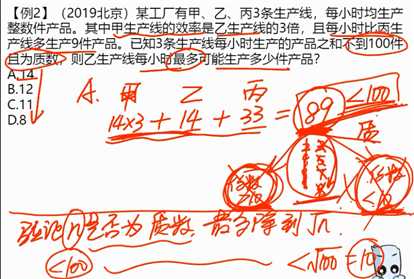 【例2】（2019北京）某工厂有甲、乙、丙3条生产线，每小时均生产
整数件产品。其中甲生产线的效率是乙生产线的3倍，且每小时比丙生
产线多生产9件产品。已知3条生产线每小时生产的产品之和不到100件
且为质数，则乙生产线每小时最多可能生产多少件产品？
A.14
B.12
C.11
D.8
A. 甲 乙 丙
14×3 + 14 + 33 = 89 <100
质
<10
验证 n 是否为质数
<100 <√100 = 10